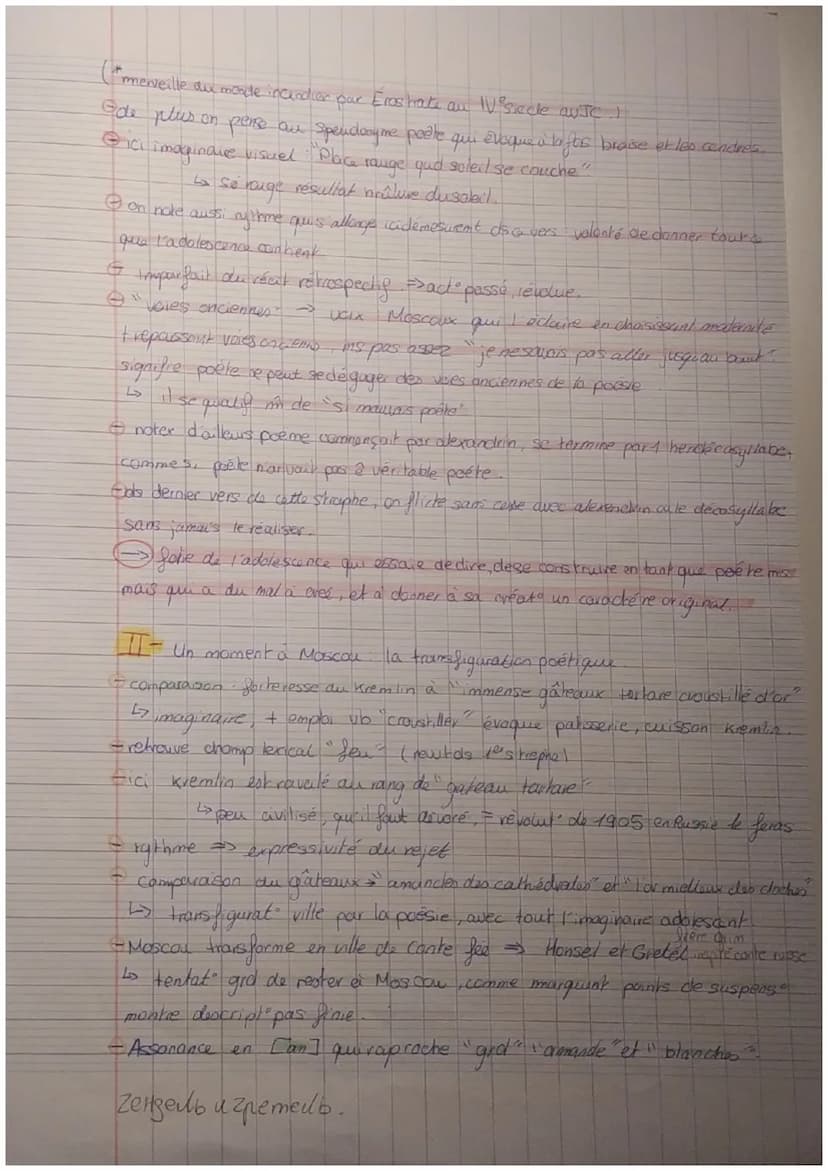 (*merveille du monde incendier par Érostrate au IVe siècle av JC)
⊖ de plus on pense au speudonyme poète qui évoque à la fois braise et les cendres.
⊖ ici imaginaire visuel "Place rouge qud soleil se couche"
↳ se rouge résultat brûlure du soleil.
⊖ on note aussi rythme qui s'allonge
que l'adolescence contient
⊖ imparfait du récit rétrospectif ⇒ act° passé, révolue.
⊖ "voies anciennes" → Moscou qui l'éclaire en choisissant modernité
signifie poète ne peut se dégager des voies anciennes de la poésie
↳ il se qualif m̂ de "si mauvais poète"
⊖ noter d'ailleurs poème commençait par alexandrin, se termine par 1 hendécasyllabe,
comme si poète n'arrivait pas à véritable poète.
⊖ ds dernier vers de cette strophe, on flirte sans cesse avec alexandrin ou le décasyllabe
sans jamais le réaliser.
→ folie de l'adolescence qui essaie de dire, de se construire en tant que poète
mais qui a du mal à créé, et à donner à sa créat° un caractère original.
II- Un moment à Moscou : la transfiguration poétique
- comparaison forteresse du Kremlin à "immense gâteaux tartare croustillé d'or"
↳ imaginaire, + emploi vb "croustiller" évoque patisserie, cuisson Kremlin.
- retrouve champ lexical "feu"
- ici Kremlin est ravalé au rang de "gateau tartare"
↳ peu civilisé, qu'il faut dévoré, = révolut° de 1905 en Russie
- rythme ⇒ expressivité du rejet
- comparaison du gâteaux → "amandes des cathédrales" et "l'or mielleux des cloches"
↳ transfigurat° ville par la poésie, avec tout l'imaginaire adolescent
frère Grim
- Moscou transforme en ville de conte fée ⇒ Honsel et Gretel conte russe
↳ tentat° grd de rester à Moscou, comme marquent points de suspens°
montre descript° pas finie.
- Assonance en [an] qui raproche "grd" "amande" et "blanches"
Гензель и Гретель.